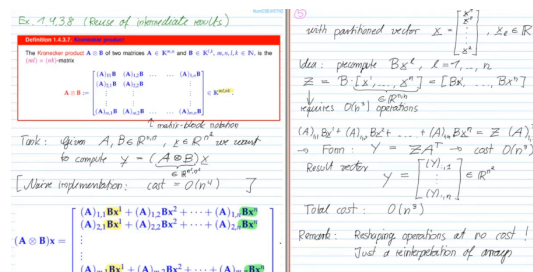 Ex. 1.4.3.8 (Reuse of intermediate results)
Definition 1.4.3.7 Kronecker product
The Kronecker product A ⊗ B of two matrices A ∈ K^{m,n} and B ∈ K^{l,k}, m,n,l,k ∈ N, is the
(ml) × (nk)-matrix
A ⊗ B := [ (A)_{1,1}B (A)_{1,2}B … … (A)_{1,n}B
(A)_{2,1}B (A)_{2,2}B (A)_{2,n}B
⋮ ⋮ ⋮
(A)_{m,1}B (A)_{m,2}B … … (A)_{m,n}B ] ∈ K^{ml,nk}.
↑ matrix-block notation
Task: given A, B ∈ R^{n,n}, x ∈ R^{n²} we want
to compute y = (A ⊗ B) x
∈ R^{n²,n²}
[ Naive implementation: cost = O(n⁴) ]
(A ⊗ B)x = [ (A)_{1,1}Bx^1 + (A)_{1,2}Bx^2 + ··· + (A)_{1,n}Bx^n
(A)_{2,1}Bx^1 + (A)_{2,2}Bx^2 + ··· + (A)_{2,n}Bx^n
⋮
(A)_{m,1}Bx^1 + (A)_{m,2}Bx^2 + ··· + (A)_{m,n}Bx^n
⑤
with partitioned vector x = [ x^1 x^2 ⋮ x^n ], x_l ∈ R
Idea: precompute Bx^l, l = 1, …, n
Z = B·[x^1, …, x^n] = [Bx^1, …, Bx^n]
∈ R^{n,n}
requires O(n³) operations
(A)_{1,1}Bx^1 + (A)_{1,2}Bx^2 + … + (A)_{1,n}Bx^n = Z (A)
→ Form: Y = ZA^T → cost O(n³)
Result vector y = [ (Y)_{:,1} ⋮ (Y)_{:,n} ] ∈ R^{n²}
Total cost: O(n³)
Remark: Reshaping operations at no cost!
Just a reinterpretation of arrays